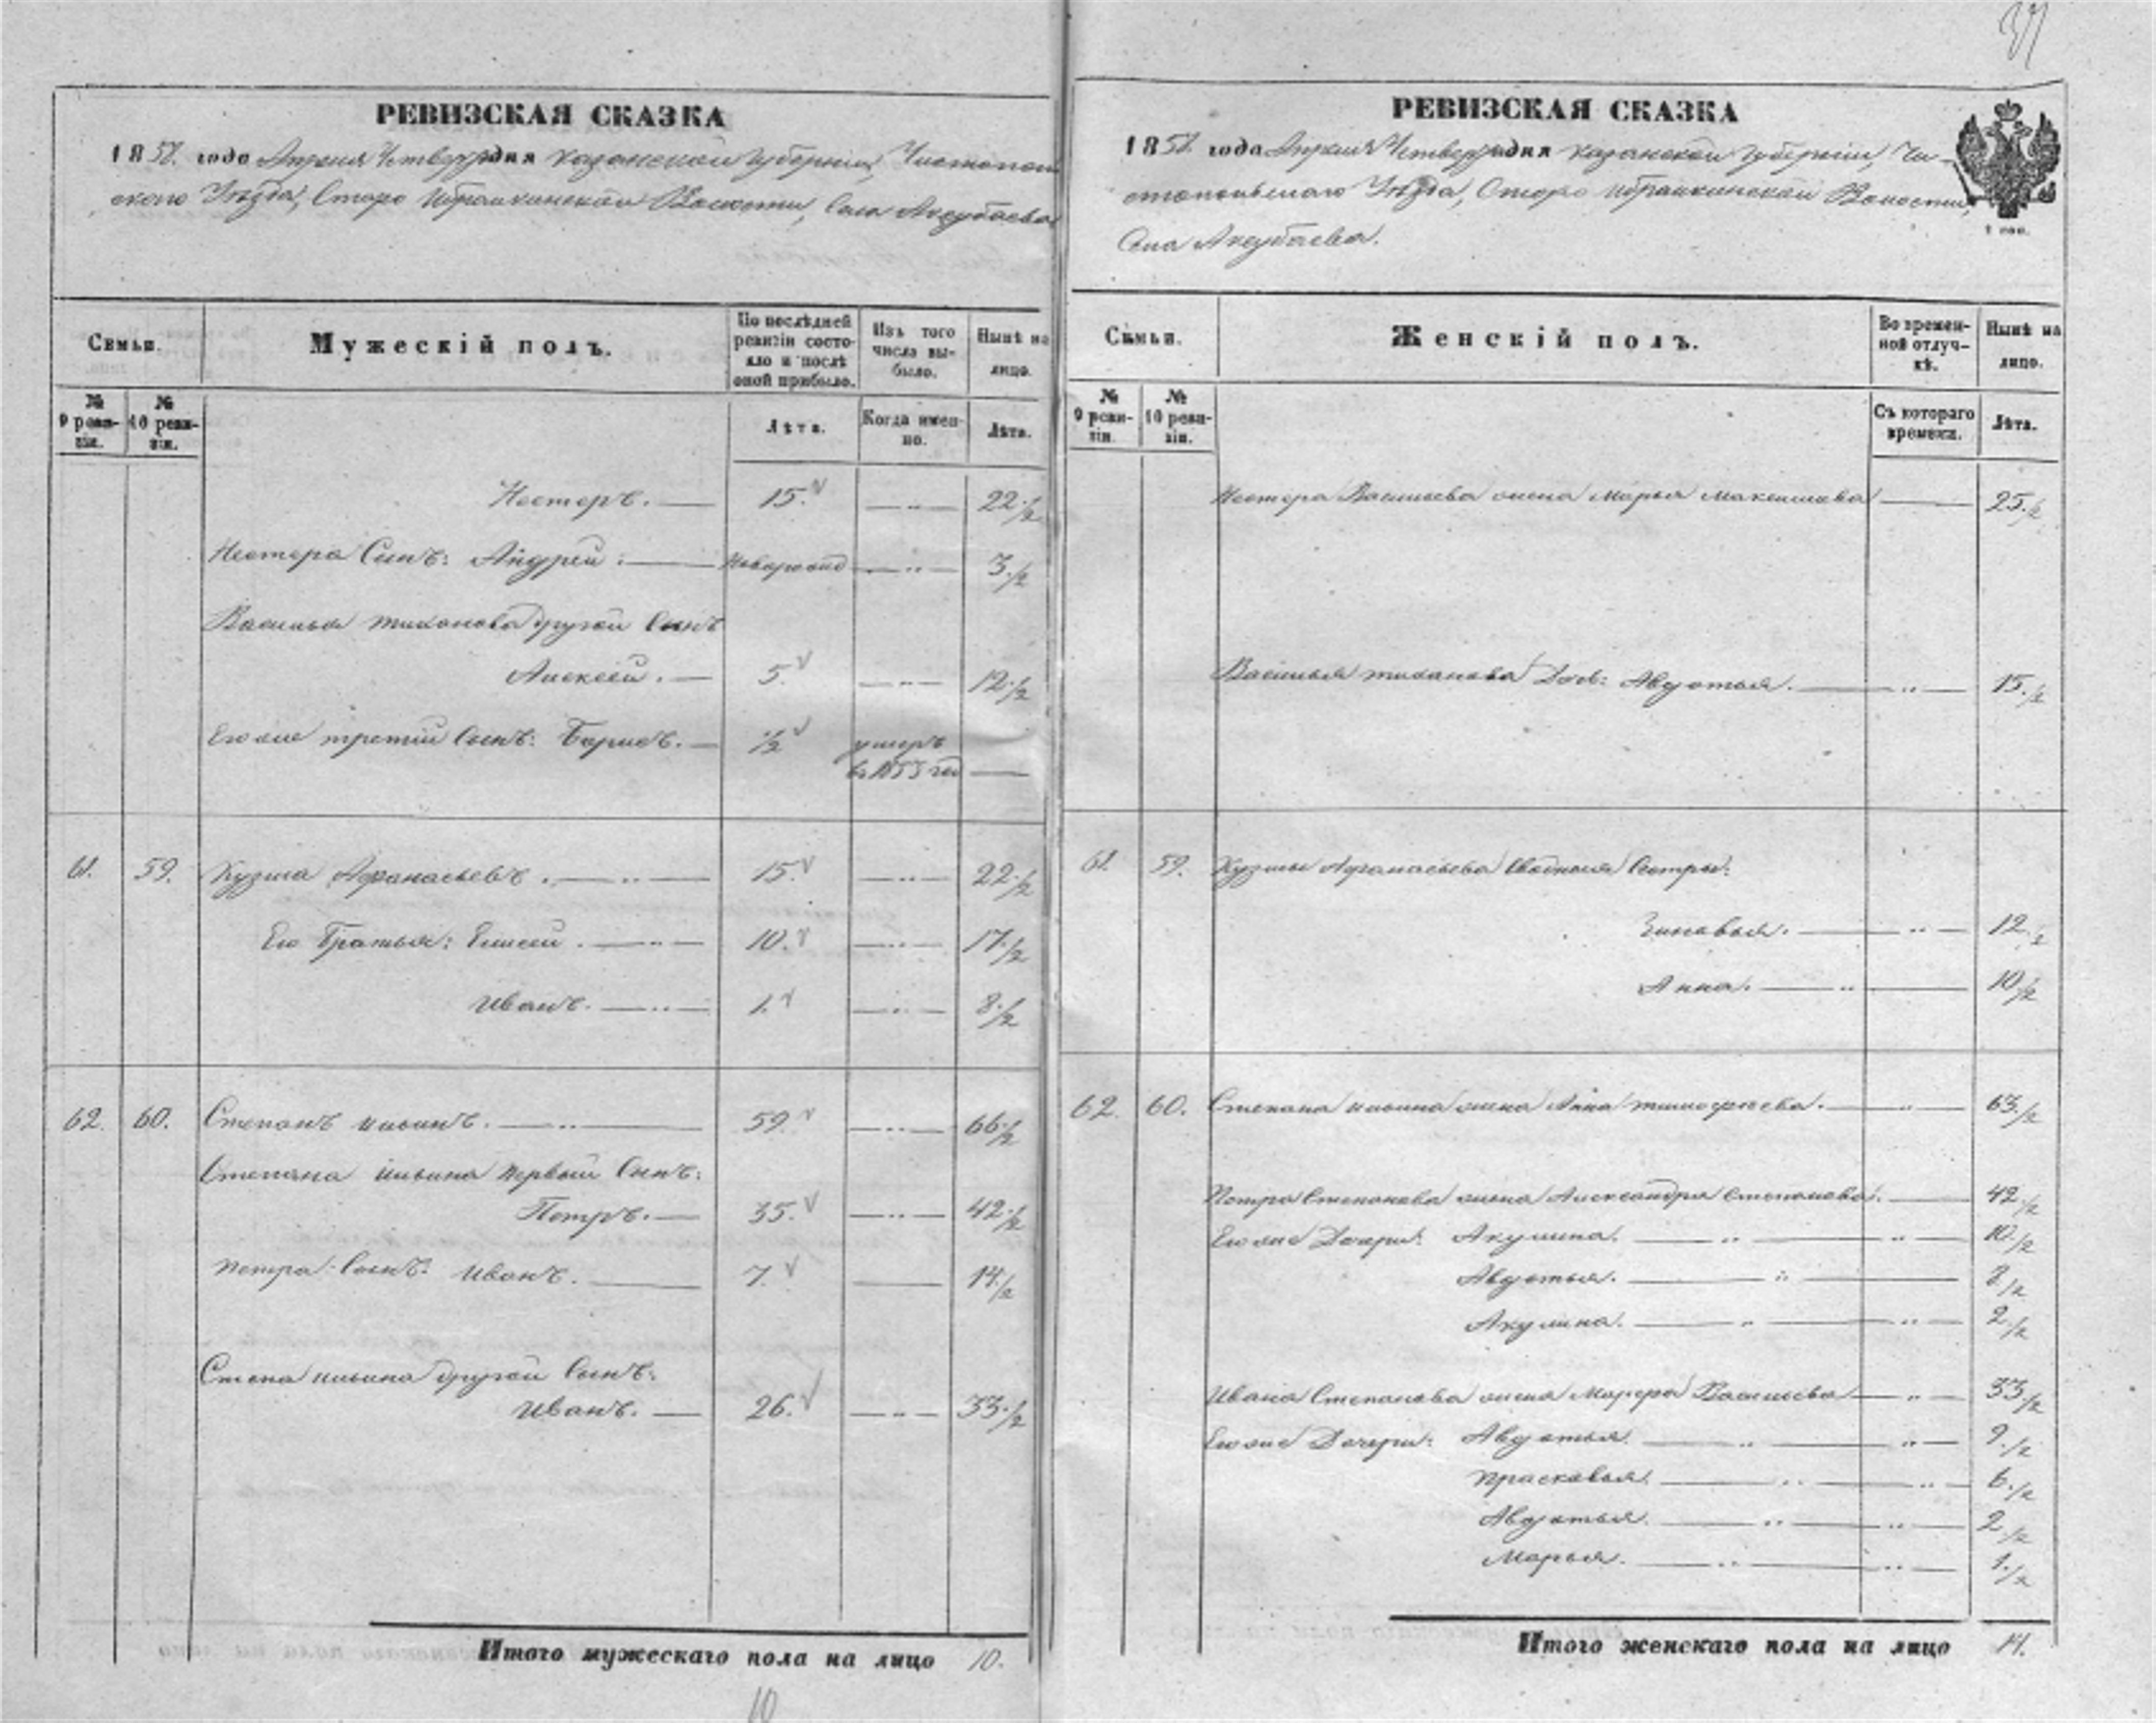 37
РЕВИЗСКАЯ СКАЗКА
1858. года Апреля Четвертаго дня Казанской Губернiи, Чистополь
скаго Уѣзда, Старо Ибрайкинской Волости, Села Аксубаева
Семьи.
Мужескiй полъ.
По послѣдней ревизiи состояло и послѣ оной прибыло.
Изъ того числа выбыло.
Нынѣ на лицо.
№ 9 ревизiи.
№ 10 ревизiи.
Лѣта.
Когда именно.
Лѣта.
Нестеръ. 15. 22 1/2
Нестера Сынъ: Андрей. Новорожд 3 1/2
Василья Тиханова другой Сынъ
Алексей. 5. 12 1/2
Его же третiй Сынъ: Борисъ. 1/2 умеръ
в 1855 год
61. 59. Кузма Афанасьевъ. 15. 22 1/2
Его Братья: Елисей. 10. 17 1/2
Иванъ. 1. 8 1/2
62. 60. Степанъ Ильинъ. 59. 66 1/2
Степана Ильина первый Сынъ:
Петръ. 35. 42 1/2
Петра Сынъ: Иванъ. 7. 14 1/2
Степа Ильина другой Сынъ:
Иванъ. 26. 33 1/2
Итого мужескаго пола на лицо 10.
10
РЕВИЗСКАЯ СКАЗКА
1858. года Апреля Четвертаго дня Казанской Губернiи, Чи-
стопольскаго Уѣзда, Старо Ибрайкинской Волости,
Села Аксубаева.
Семьи.
Женскiй полъ.
Во временной отлучкѣ.
Нынѣ на лицо.
№ 9 ревизiи.
№ 10 ревизiи.
Съ котораго времени.
Лѣта.
Нестера Васильева жена Марья Максимова 25 1/2
Василья Тиханова Дочь: Авдотья. 15 1/2
61. 59. Кузмы Афанасьева Сводныя Сестры:
Зиновья. 12 1/2
Анна. 10 1/2
62. 60. Степана Ильина жена Анна Тимофеева. 63 1/2
Петра Степанова жена Александра Степанова. 42 1/2
Его же Дочери: Акулина. 10 1/2
Авдотья. 8 1/2
Акулина. 2 1/2
Ивана Степанова жена Марфа Васильева 33 1/2
Его же Дочери: Авдотья. 9 1/2
Прасковья. 6 1/2
Авдотья. 2 1/2
Марья. 1 1/2
Итого женскаго пола на лицо 14.